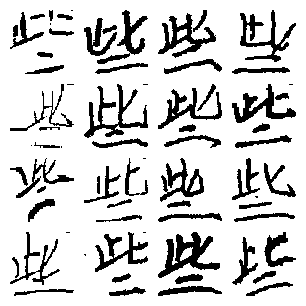 些些些些
些些些些
些些些些
些些些些